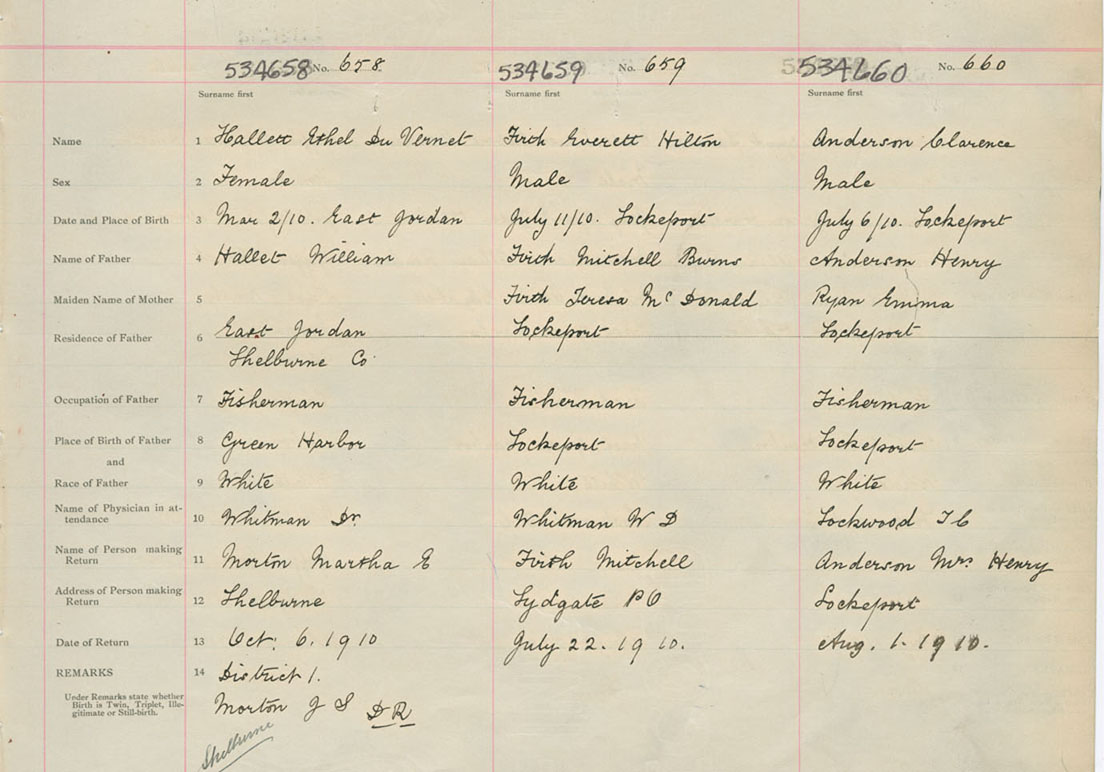 534658 No. 658 534659 No. 659 534660 No. 660
Surname first Surname first Surname first
Name 1 Hallett Ethel Du Vernet Firth Everett Hilton Anderson Clarence
Sex 2 Female Male Male
Date and Place of Birth 3 Mar 2/10. East Jordan July 11/10. Lockeport July 6/10. Lockeport
Name of Father 4 Hallet William Firth Mitchell Burns Anderson Henry
Maiden Name of Mother 5 Firth Teresa Mc Donald Ryan Emma
Residence of Father 6 East Jordan Lockeport Lockeport
Shelburne Co
Occupation of Father 7 Fisherman Fisherman Fisherman
Place of Birth of Father 8 Green Harbor Lockeport Lockeport
and
Race of Father 9 White White White
Name of Physician in at-
tendance 10 Whitman Dr Whitman W D Lockwood T C
Name of Person making
Return 11 Morton Martha E Firth Mitchell Anderson Mrs Henry
Address of Person making
Return 12 Shelburne Lydgate PO Lockeport
Date of Return 13 Oct. 6. 1910 July 22. 1910. Aug. 1. 1910.
REMARKS 14 District 1.
Under Remarks state whether
Birth is Twin, Triplet, Ille-
gitimate or Still-birth.
Morton J S DR
Shelburne